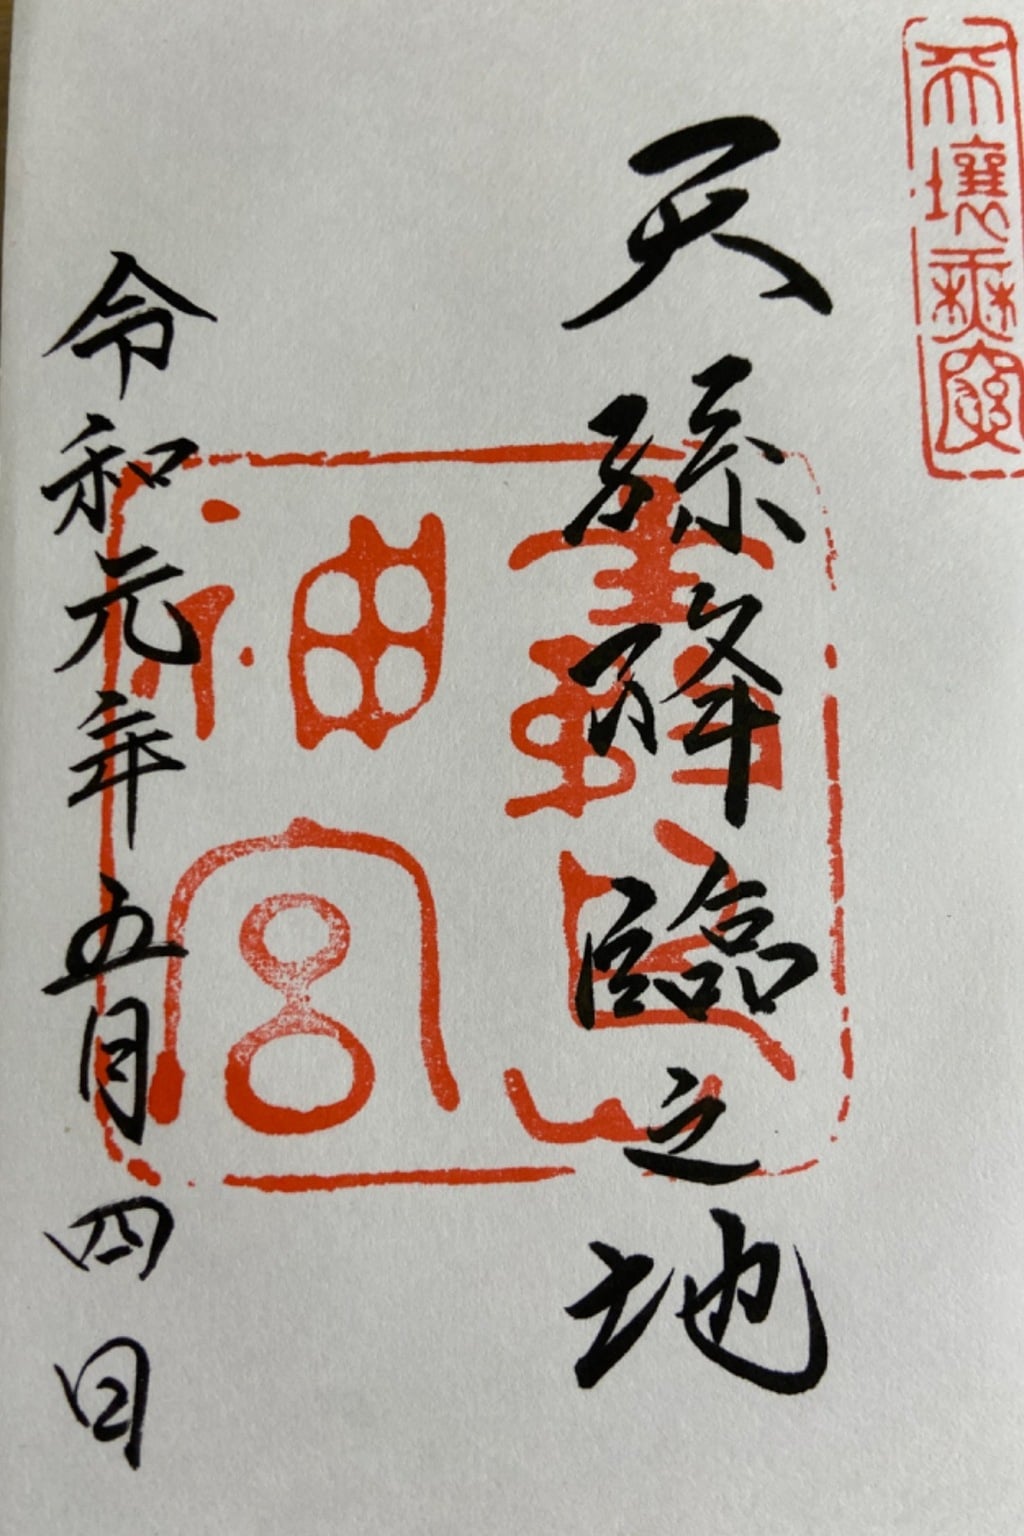 天壌無窮
天孫降臨之地
霧島
神宮
令和元年五月四日